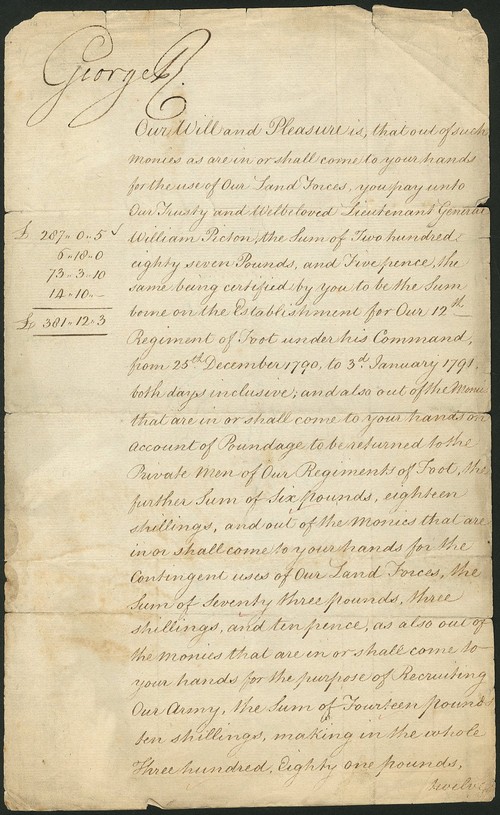 George R.
Our Will and Pleasure is, that out of such
Monies as are in or shall come to your hands
for the use of Our Land Forces, you pay unto
Our Trusty and Welbeloved Lieutenant General
William Picton, the Sum of Two hundred
eighty seven Pounds, and Five pence, the
same being certified by you to be the Sum
borne on the Establishment for Our 12th
Regiment of Foot under his Command,
from 25th December 1790, to 3d. January 1791,
both days inclusive; and also out of the Monies
that are in or shall come to your hands on
Account of Poundage to be returned to the
Private Men of Our Regiments of Foot, the
further Sum of Six pounds, eighteen
shillings, and out of the Monies that are
in or shall come to your hands for the
Contingent uses of Our Land Forces, the
Sum of Seventy three pounds, three
shillings, and ten pence, as also out of
the Monies that are in or shall come to
your hands for the purpose of Recruiting
Our Army, the Sum of Fourteen pounds
ten shillings, making in the whole
Three hundred, Eighty one pounds,
twelve
£ 287„ 0„ 5
6„18„0
73„3„10
14„10„—
£ 381„12„3